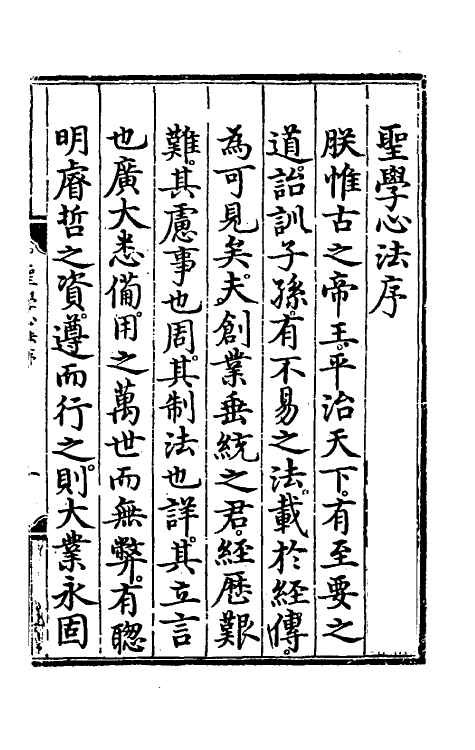 聖學心法序
朕惟古之帝王。平治天下。有至要之
道。詒訓子孫。有不易之法。載於經傳。
為可見矣。夫創業垂統之君。經歷艱
難。其慮事也周。其制法也詳。其立言
也廣大悉備。用之萬世而無弊。有聰
明睿哲之資。遵而行之。則大業永固
聖學心法序
一